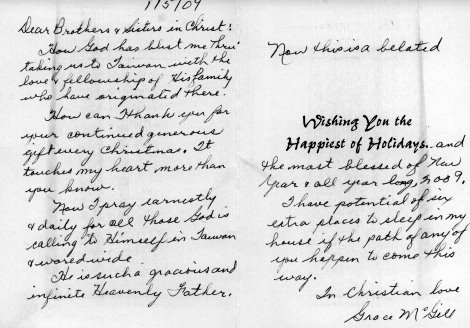 1/5/09
Dear Brothers & Sisters in Christ:
How God has blest me thru
taking us to Taiwan with the
love & fellowship of His family
who have originated there.
How can I thank you for
your continued generous
gift every Christmas. It
touches my heart more than
you know.
Now I pray earnestly
& daily for all those God is
calling to Himself in Taiwan
& world wide.
He is such a gracious and
infinite Heavenly Father.
Now this is a belated
Wishing You the
Happiest of Holidays.. and
the most blessed of New
Year & all year long, 2009.
I have potential of six
extra places to sleep in my
house if the path of any of
you happen to come this
way.
In Christian love
Grace McGill